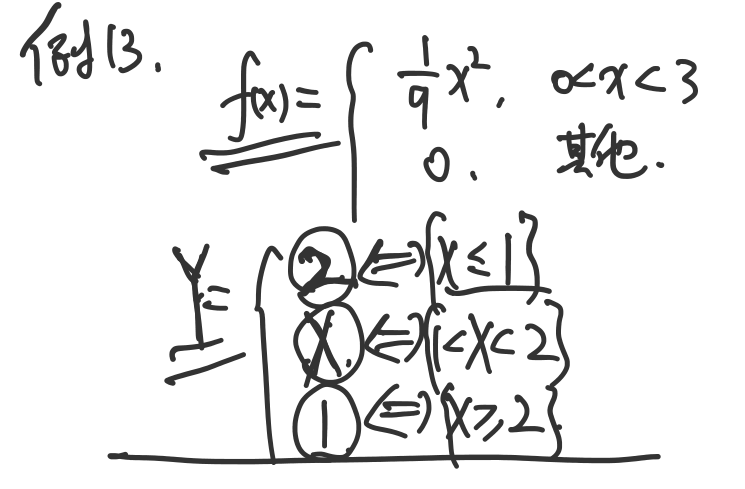 例13.
f(x)= { 1/9 x², 0<x<3
0. 其他.
Y= { 2 <=> {X≤1}
X <=> {1<X<2}
1 <=> {X≥2}